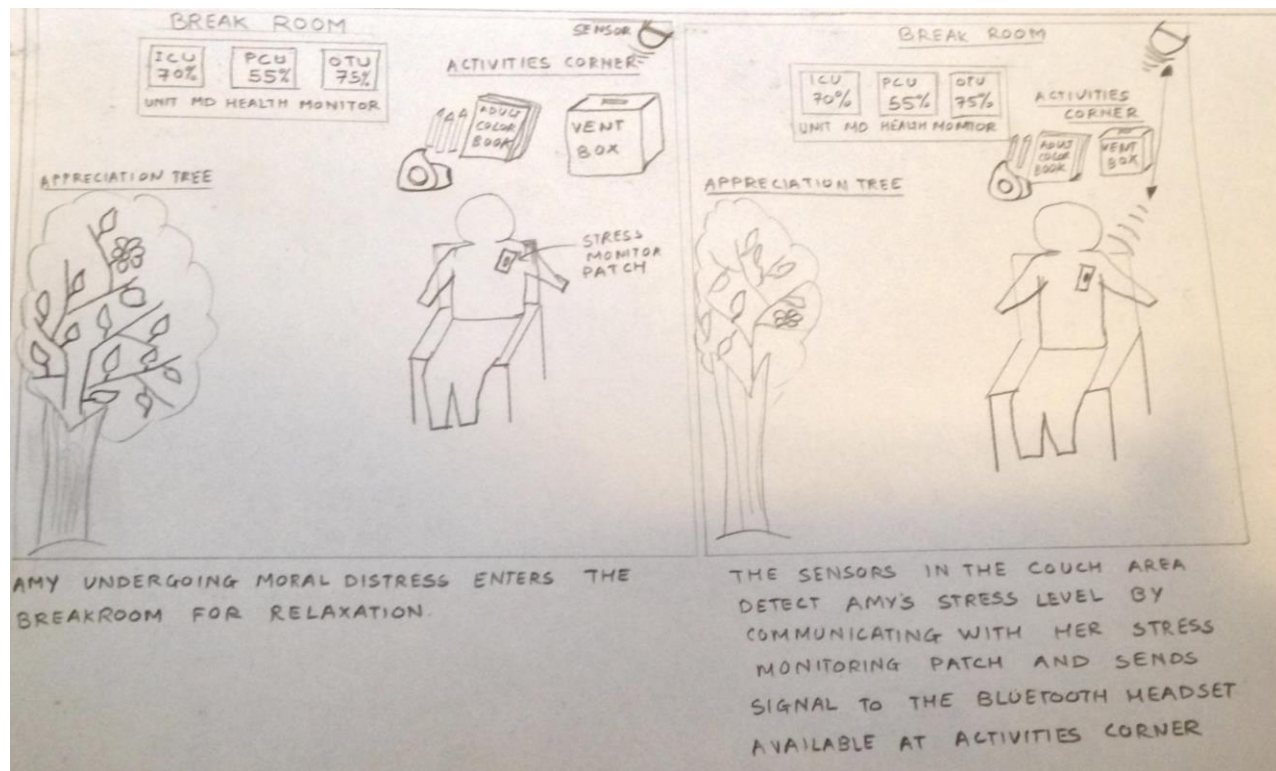 BREAK ROOM
SENSOR
ICU
70%
PCU
55%
OTU
75%
UNIT MD HEALTH MONITOR
ACTIVITIES CORNER
ADULT
COLOR
BOOK
VENT
BOX
APPRECIATION TREE
STRESS
MONITOR
PATCH
AMY UNDERGOING MORAL DISTRESS ENTERS THE
BREAKROOM FOR RELAXATION.
BREAK ROOM
ICU
70%
PCU
55%
OTU
75%
UNIT MD HEALTH MONITOR
ACTIVITIES
CORNER
ADULT
COLOR
BOOK
VENT
BOX
APPRECIATION TREE
THE SENSORS IN THE COUCH AREA
DETECT AMY'S STRESS LEVEL BY
COMMUNICATING WITH HER STRESS
MONITORING PATCH AND SENDS
SIGNAL TO THE BLUETOOTH HEADSET
AVAILABLE AT ACTIVITIES CORNER